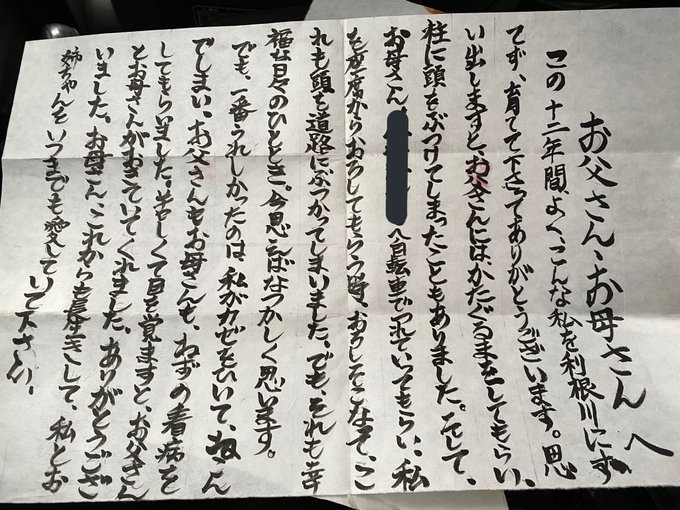 お父さん、お母さんへ
この十二年間、よく、こんな私を利根川にす
てず、育てて下さってありがとうございます。思
い出しますと、お父さんにはかたぐるまをしてもらい、
柱に頭をぶつけてしまったこともありました。そして、
お母さん。
へ自転車でつれていってもらい、私
を座席からおろしてもらう時、おろしそこなって、こ
れも頭を道路にぶつかってしまいました。でも、それも幸
福な日々のひととき。今思えばなつかしく思います。
でも、一番うれしかったのは、私がカゼをひいて、ねこん
でしまい、お父さんもお母さんも、ねずの看病を
してもらいました。苦しくて目を覚ますと、お父さん
とお母さんがおきていてくれました。ありがとうござ
いました。お母さん、これからも長生きして、私とお
姉ちゃんをいつまでも愛していて下さい。